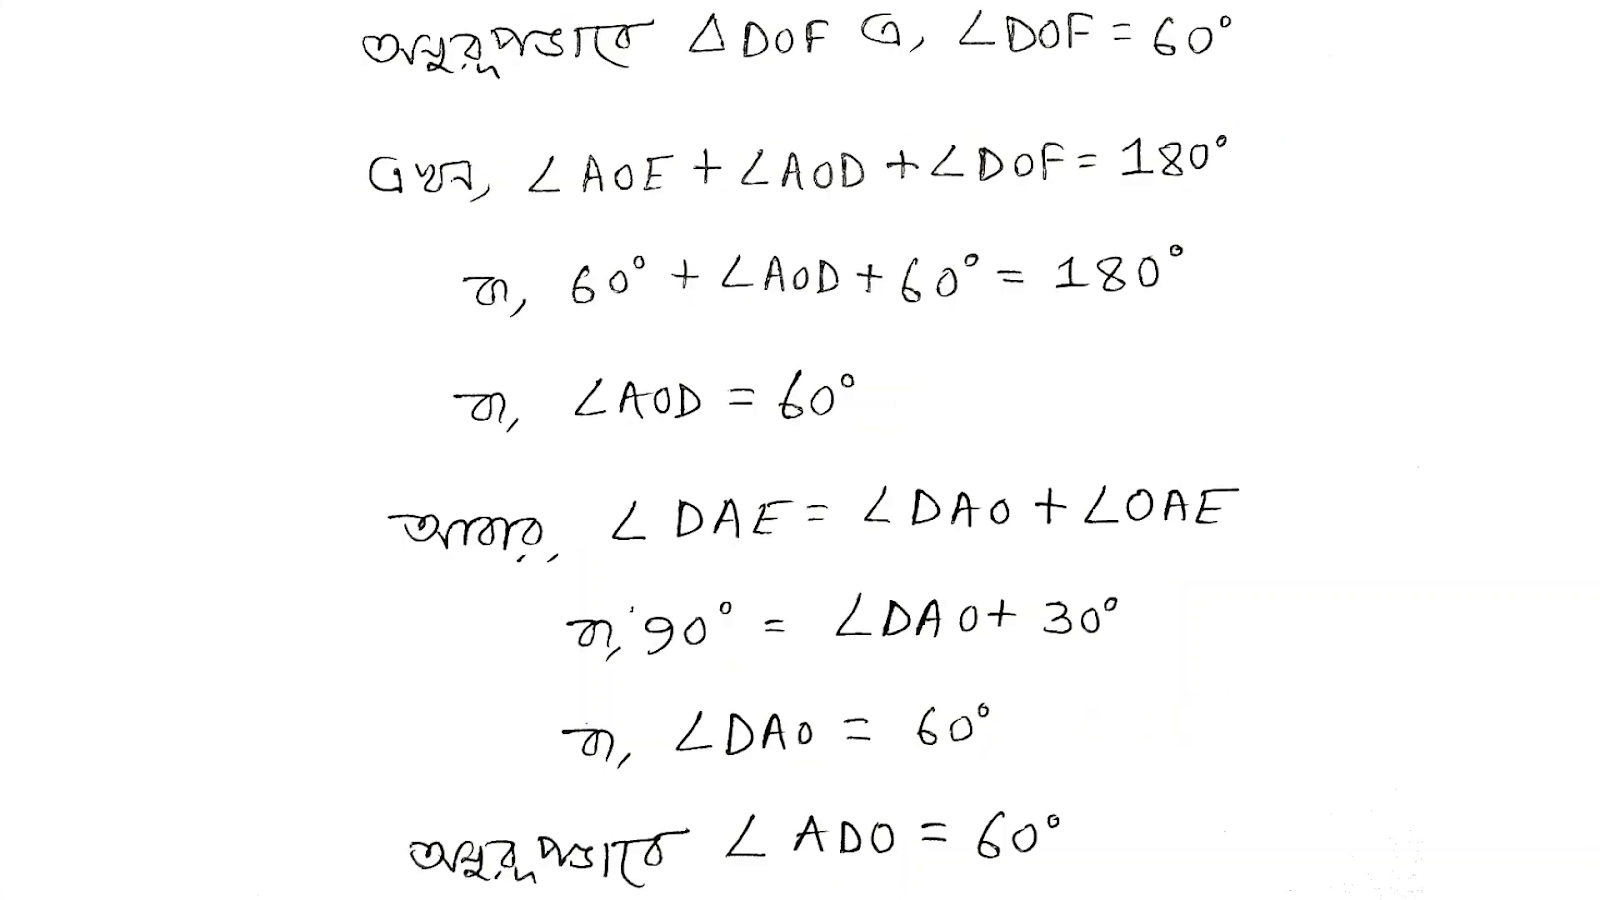 অনুরূপভাবে △DOF এ, ∠DOF = 60°
এখন, ∠AOE + ∠AOD + ∠DOF = 180°
বা, 60° + ∠AOD + 60° = 180°
বা, ∠AOD = 60°
আবার, ∠DAE = ∠DAO + ∠OAE
বা, 90° = ∠DAO + 30°
বা, ∠DAO = 60°
অনুরূপভাবে ∠ADO = 60°